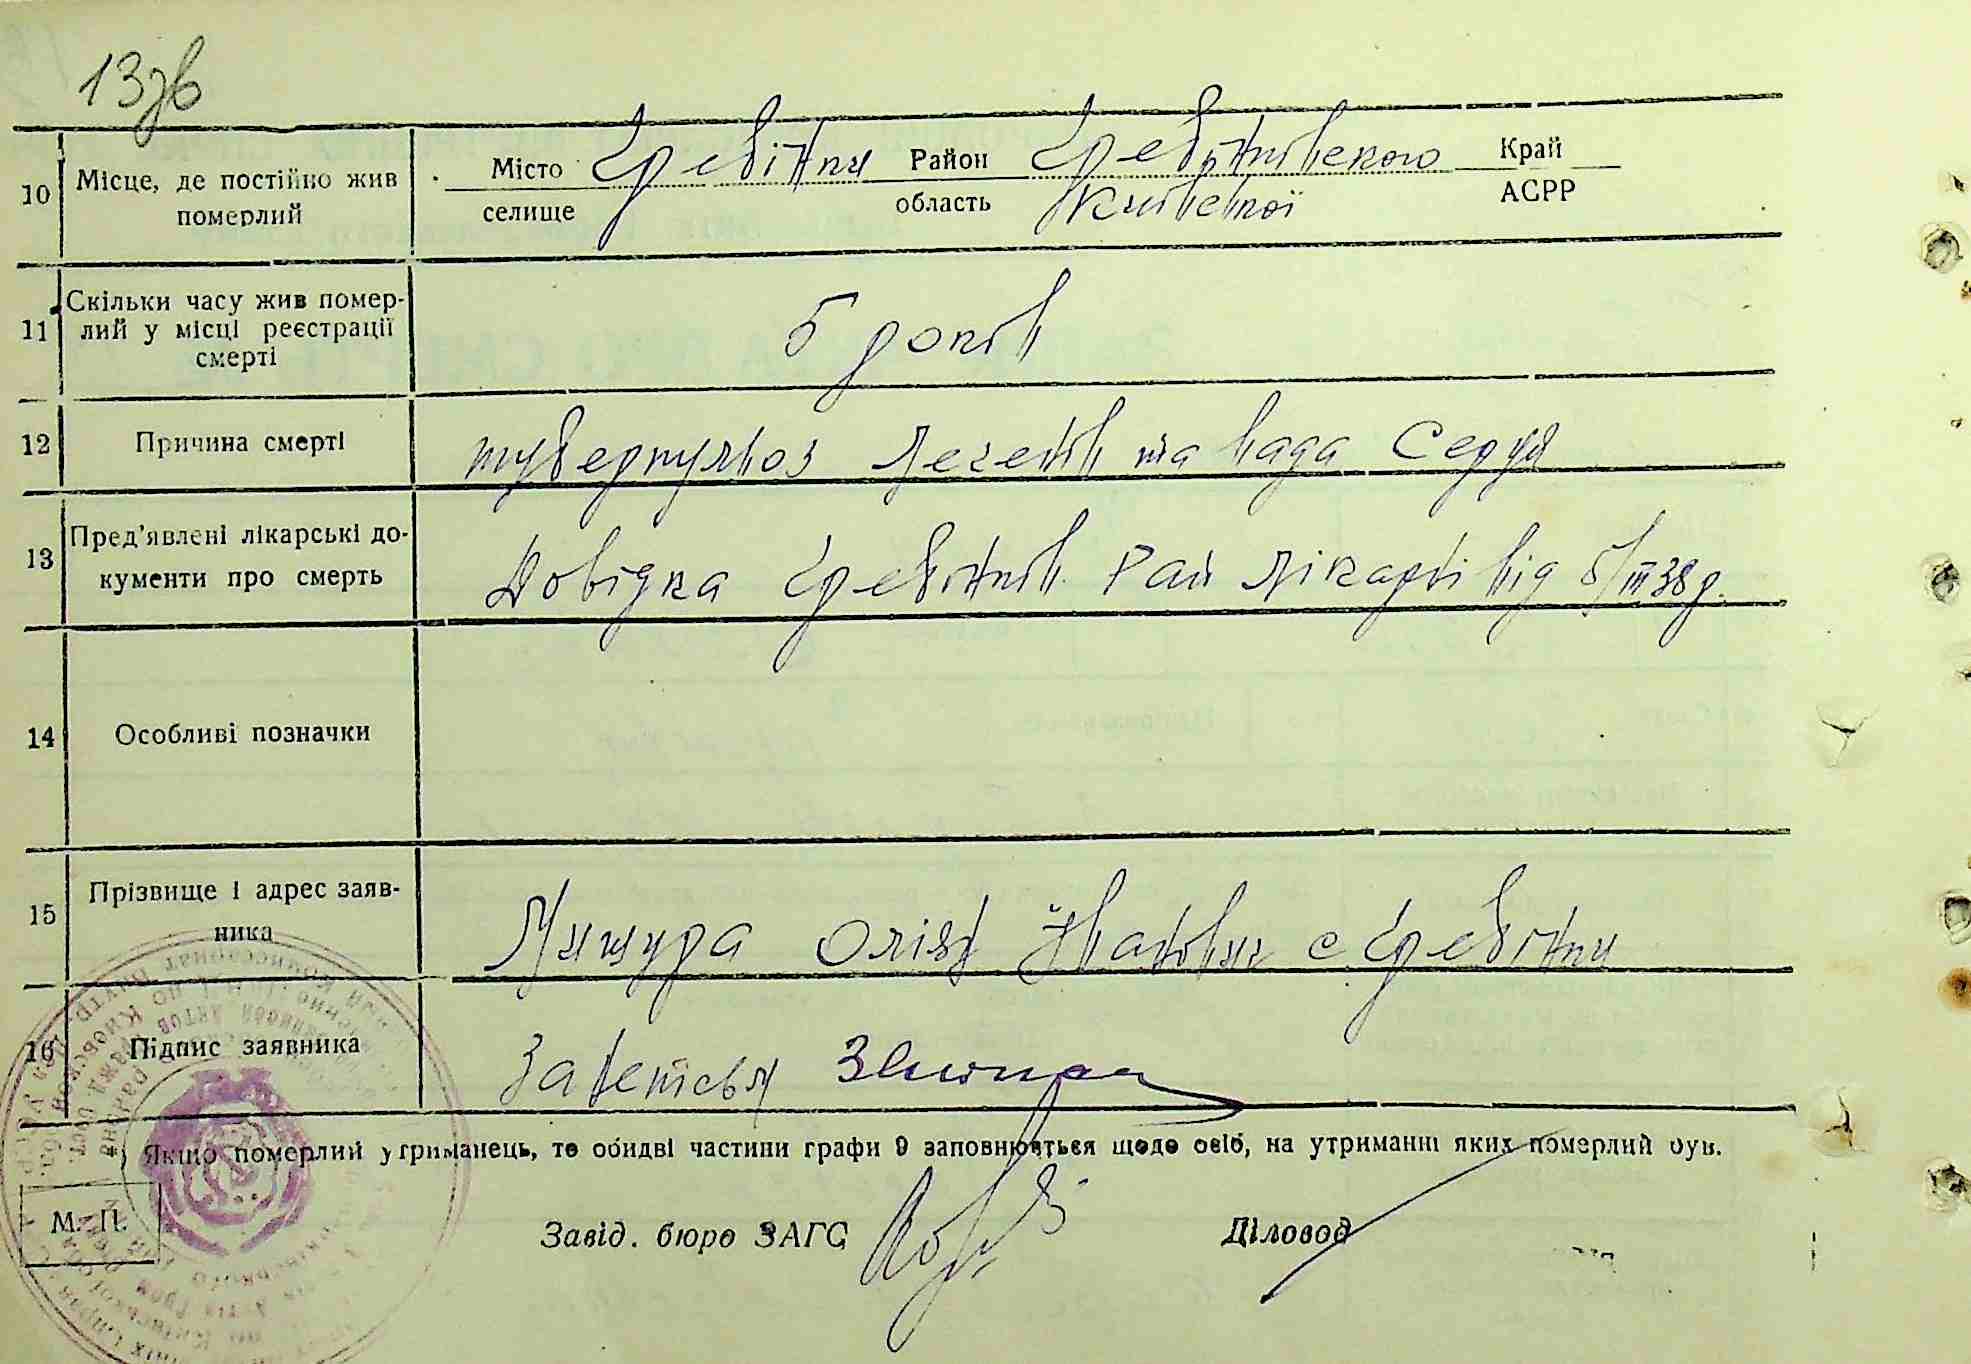 13зв
10 Місце, де постійно жив померлий Місто селище Гребінки Район Гребінківского область Київскої Край АСРР
11 Скільки часу жив померлий у місці реєстрації смерті 5 років
12 Причина смерті туберкульоз легенів та вада Серця
13 Пред'явлені лікарські документи про смерть Довідка Гребінків. Рай лікарні від 5/III 38 р.
14 Особливі позначки
15 Прізвище і адрес заявника Мишура Олія с Гребінки
16 Підпис заявника
Якщо померлий утриманець, то обидві частини графи 9 заповнюються щодо осіб, на утриманні яких померлий був.
М. П. Завід. бюро ЗАГС Діловод